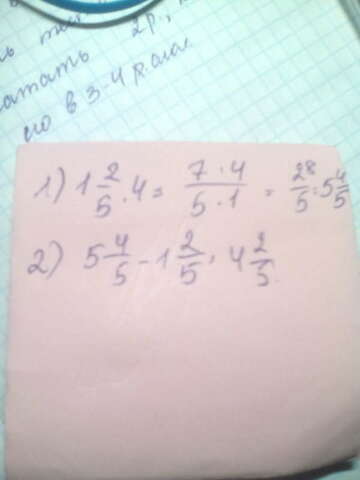 2р.,
татать
но в 3-4 р. алле
1) 1 2/5 · 4 = 7 · 4 / 5 · 1 = 28/5 = 5 4/5
2) 5 4/5 - 1 2/5 = 4 2/5